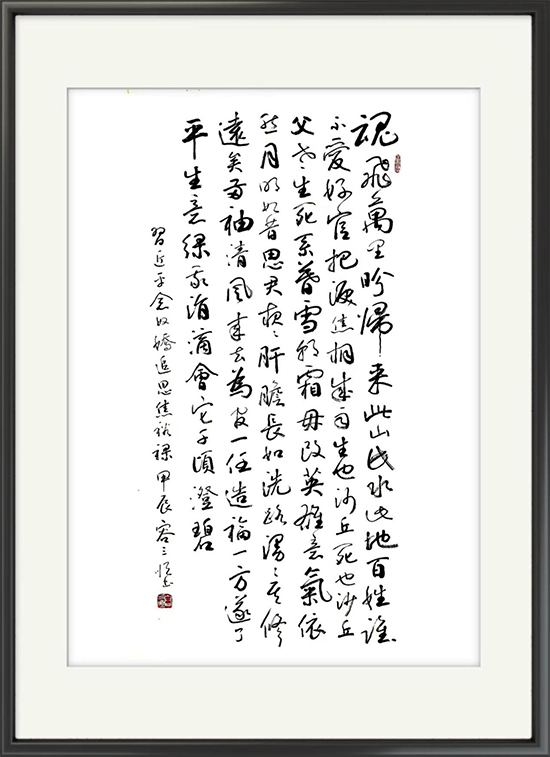 魂飛萬里盼歸來此山此水此地百姓誰
不愛好官把淚焦桐成雨生也沙丘死也沙丘
父老生死系暮雪朝霜毋改英雄意氣依
然月明如昔思君夜々肝膽長如洗路漫々其修
遠矣兩袖清風來去為官一任造福一方遂了
平生意綠我涓滴會它千頃澄碧
習近平念奴嬌追思焦裕祿 甲辰